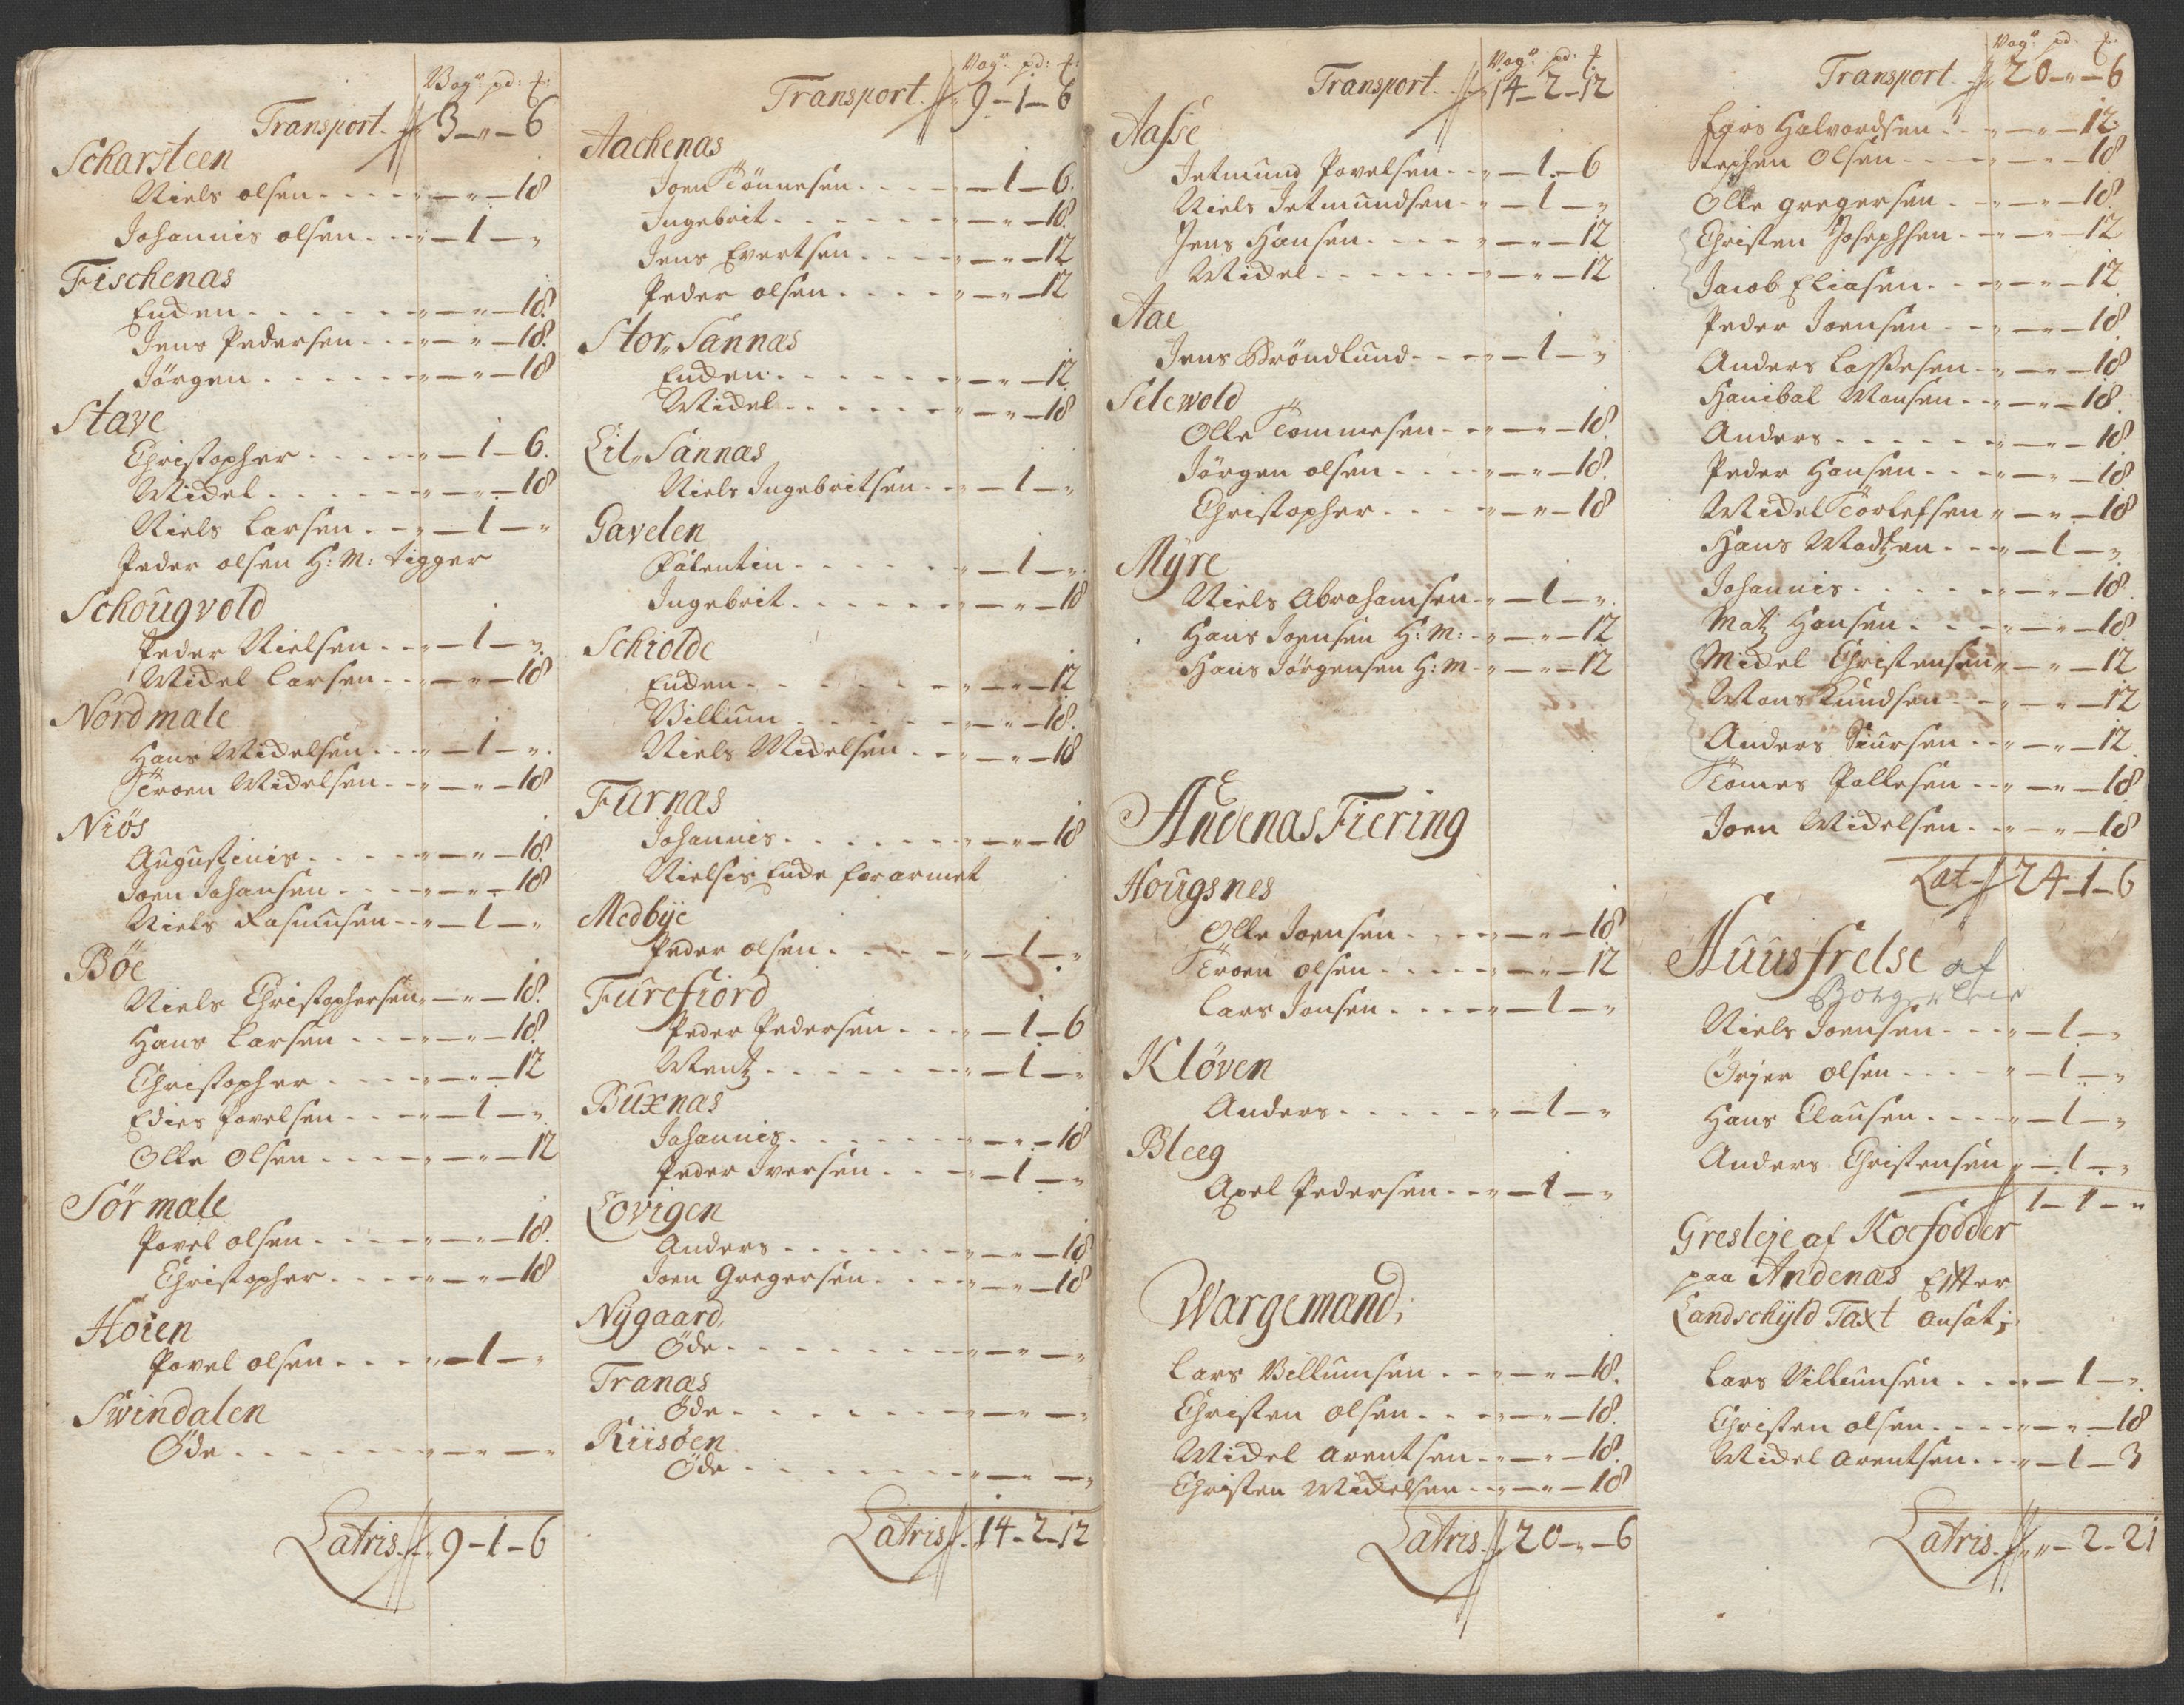 Vog: pd: t:
Transport. 3 — „ — 6
Scharsteen
Niels olsen . . . . „ — „ — 18
Johannis olsen . . . „ — 1 — „
Fischenas
Enden . . . . . . „ — „ — 18.
Jens Pedersen . . . „ — „ — 18.
Jörgen . . . . . . „ — „ — 18
Stave
Christopher . . . . . „ — 1 — 6.
Midel . . . . . . „ — „ — 18
Niels Larsen . . „ — 1 — „
Peder olsen H: M: tigger
Schougvold
Peder Nielsen . . „ — 1 — „.
Midel Larsen . . „ — „ — 18
Nordmale
Hans Midelsen . . . „ — 1 — „.
Troen Midelsen . . „ — „ — 18
Niös
Augustinis . . . . . „ — „ — 18.
Joen Johansen . . . . „ — „ — 18
Niels Rasmusen . . „ — 1 — „
Böe
Niels Christophersen „ — „ — 18.
Hans Larsen . . . . „ — „ — 18.
Christopher . . . . . „ — „ — 12
Edies Povelsen . . . „ — 1 — „
Olle Olsen . . . . . „ — „ — 12
Sör male
Povel olsen . . . . . „ — „ — 18.
Christopher . . . . „ — „ — 18
Hoien
Povel olsen . . . . „ — 1 — „
Swindalen
Öde . . . . . . . „ — „ — „
Latris. 9 — 1 — 6
Vog: pd: t:
Transport. 9 — 1 — 6
Aachenas
Joen Tönnesen . . . . — 1 — 6.
Ingebrit . . . . . . . „ — „ — 18.
Jens Evertsen . . . . „ — „ — 12
Peder olsen . . . . . „ — „ — 12
Stor„ Sannas
Enden . . . . . . . „ — „ — 12
Midel . . . . . . . „ — „ — 18
Lil„ Sannas
Niels Ingebritsen . . „ — 1 — „
Gavelen
Falentin . . . . . . . „ — 1 — „.
Ingebrit . . . . . . . „ — „ — 18
Schiolde
Enden . . . . . . . „ — „ — 12
Villum . . . . . . „ — „ — 18.
Niels Midelsen . . „ — „ — 18
Furnas
Johannis . . . . . . . „ — „ — 18
Nielsis Ende forarmet
Medbye
Peder olsen . . . . . „ — 1 — „
Furefiord
Peder Pedersen . . . „ — 1 — 6
Mentz . . . . . . . „ — 1 — „
Buxnas
Johannis . . . . . . . „ — „ — 18
Peder Iversen . . . . — 1 — „
Lovigen
Anders . . . . . . . „ — „ — 18
Joen Gregersen . . . . „ — „ — 18
Nygaard.
Öde . . . . . . . . „ — „ — „
Tranas
Öde . . . . . . . „ — „ — „
Riisöen
Öde . . . . . . . „ — „ — „
Latris. 14 — 2 — 12
Vog: pd: t:
Transport. 14 — 2 — 12
Aasse
Jetmund Povelsen . . „ — 1 — 6
Niels Jetmundsen . „ — 1 — „
Jens Hansen . . . . „ — „ — 12
Midel . . . . . . . „ — „ — 12
Aae
Jens Bröndlund . . . „ — 1 — „
Selewold
Olle Tommesen . . „ — „ — 18.
Jörgen olsen . . . . „ — „ — 18.
Christopher . . . . „ — „ — 18
Myre
Niels Abrahamsen . „ — 1 — „.
Hans Joensen H: M: . „ — „ — 12
Hans Jörgensen H: M . „ — „ — 12
Andenas Fiering
Hougsnes
Olle Joensen . . . . „ — „ — 18
Troen olsen . . . . . „ — „ — 12
Lars Jonsen . . . . . „ — 1 — „
Klöven
Anders . . . . . . „ — 1 — „
Bleeg
Axel Pedersen . . „ — 1 — „
Wargemand;
Lars Villumsen . . . „ — „ — 18.
Christen olsen . . . . „ — „ — 18.
Midel Arentsen . . „ — „ — 18.
Christen Midelsen . . „ — „ — 18
Latris. 20 — „ — 6
Vog: pd: t:
Transport. 20 — „ — 6
Halvordsen . . „ — „ — 12.
Stephen Olsen . . . . „ — „ — 18
Olle gregersen . . „ — „ — 18.
Christen Josephsen . . „ — „ — 12
Jacob Eliasen . . . „ — „ — 12
Peder Joensen . . . „ — „ — 18
Anders Lassesen . . „ — „ — 18
Hanibal Monsen . . „ — „ — 18.
Anders . . . . . . . „ — „ — 18
Peder Hansen . . . „ — „ — 18.
Midel Torlefsen „ — „ — 18
Hans Madtzen . . . „ — 1 — „
Johannis . . . . . . „ — „ — 18.
Matz Hansen . . . . „ — „ — 18.
Midel Christensen „ — „ — 12
Mons Knudsen . . „ — „ — 12
Anders Siursen . . „ — „ — 12
Tomes Pallesen . . „ — „ — 18
Joen Midelsen . . „ — „ — 18
Lat. 24 — 1 — 6
Huusfrelse af
Borgerleie
Niels Joensen . . . „ — 1 — „
olsen . . . . „ — 1 — „
Hans Clausen . . . . „ — 1 — „
Anders Christensen „ — 1 — „
1 — 1 — „
Gresleje af Koefodder
paa Andenas Efter
Landschyld Taxt ansat;
Lars Villumsen . . . „ — 1 — „.
Christen olsen . . . . „ — „ — 18
Midel Arentsen . . . „ — 1 — 3
Latris. „ — 2 — 21